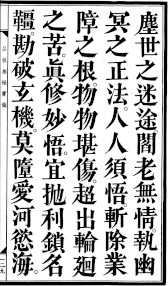 塵世之迷途閻老無情.執幽
冥之正法.人人須悟斬除業
障之根.物物堪傷超出輪廻
之苦.眞修妙悟宜拋利鎖名
韁.勘破玄機.莫墮愛河慾海.
二九